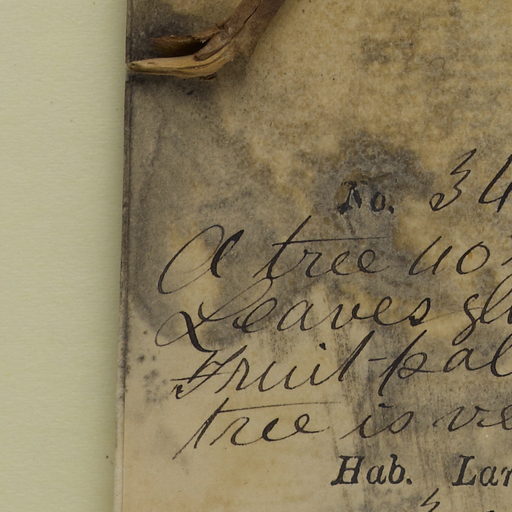 No. 34
A tree 40
Leaves gl
Fruit-pal
tree is ve
Hab. Lar